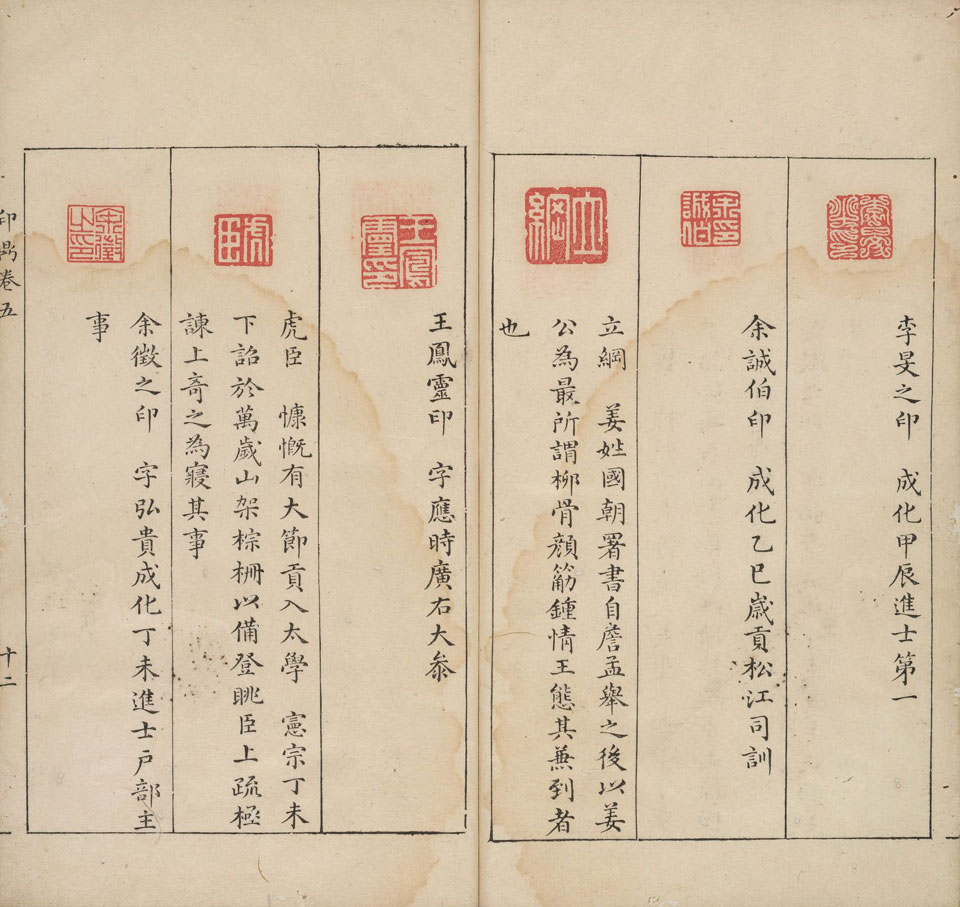 李旻之印　成化甲辰進士第一
余印誠伯
余誠伯印　成化乙巳歲貢松江司訓
立綱
立綱　姜姓國朝署書自詹孟舉之後以姜
公為最所謂柳骨顔筋鍾情王態其兼到者
也
王鳳靈印
王鳳靈印　字應時廣右大叅
虎臣
虎臣　慷慨有大節貢入太學　憲宗丁未
下詔於萬歲山架棕棚以備登眺臣上疏極
諫上奇之為寢其事
余徵之印
余徵之印　字弘貴成化丁未進士戶部主
事
卷五
十二